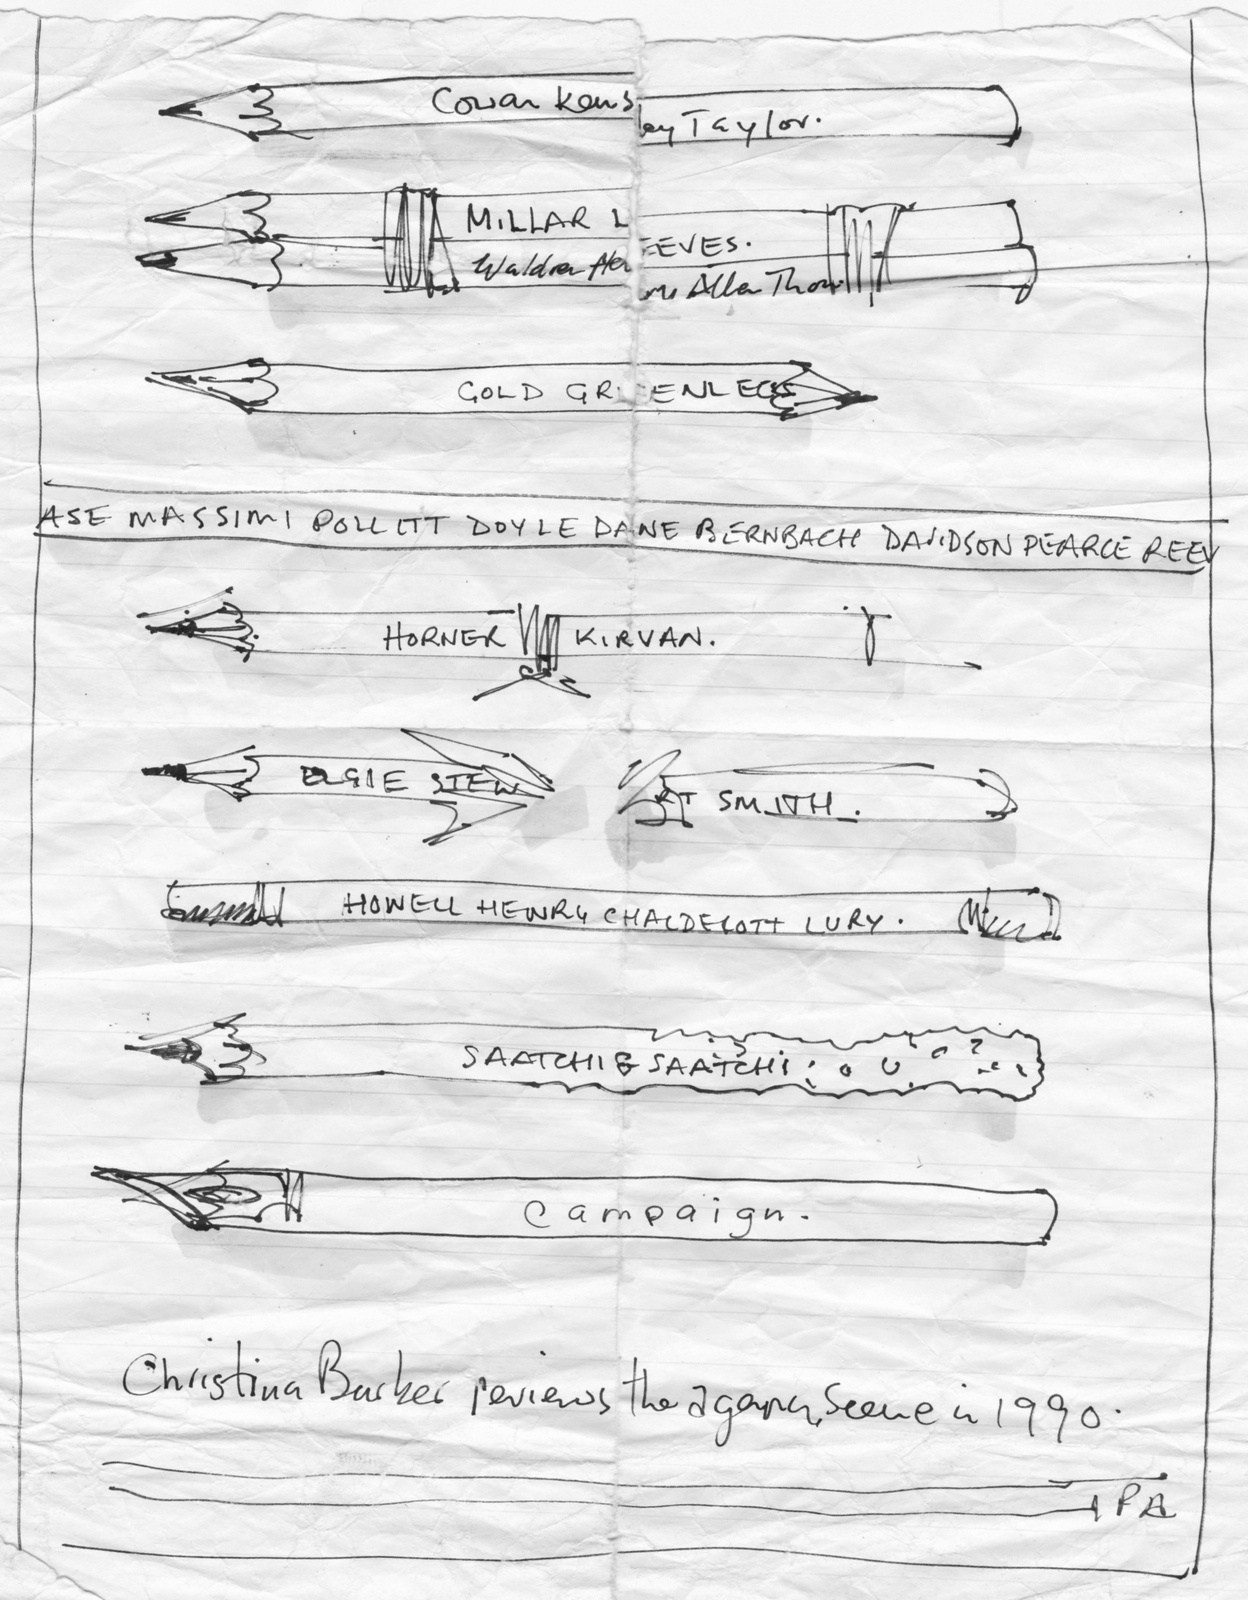 Cowan Kems ley Taylor.
MILLAR L EEVES.
Waldron Allen Thom
GOLD GREENLEES
ASE MASSIMI POLLITT DOYLE DANE BERNBACH DAVIDSON PEARCE REEV
HORNER KIRVAN.
ELGIE STEW RT SMITH.
HOWELL HENRY CHALDECOTT LURY.
SAATCHI & SAATCHI
Campaign.
Christina Barker reviews the agency scene in 1990.
IPA